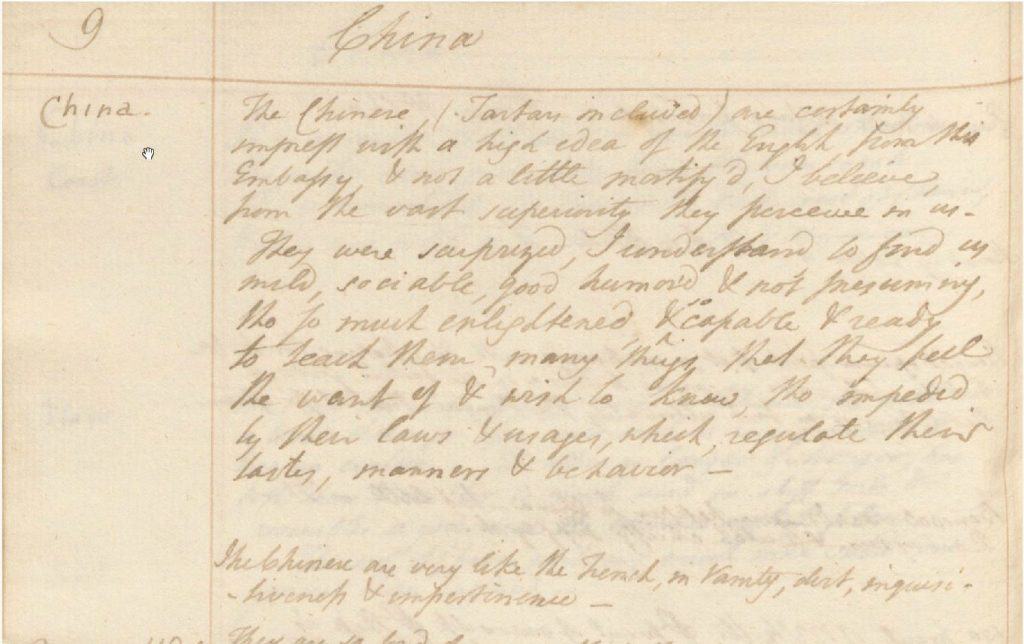 9
China
China.
The Chinese, (Tartars included) are certainly
imprest with a high idea of the English from this
Embassy, & not a little mortify'd, I believe,
from the vast superiority they perceive in us -
They were surprized, I understand to find us
mild, sociable, good humor'd & not presuming,
tho so much enlightened, & so capable & ready
to teach them many things that they feel
the want of & wish to know, tho impeded
by their laws & usages, which regulate their
tastes, manners & behavior -
The Chinese are very like the French, in Vanity, dirt, inquisi-
-tiveness & impertinence -
They are so